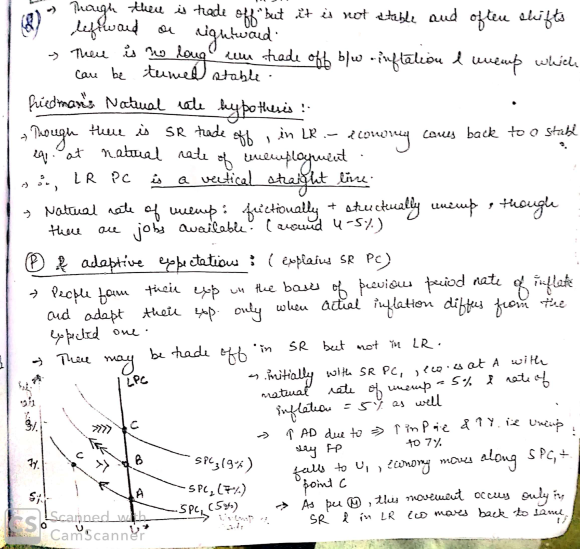 (2) → Though there is trade off but it is not stable and often shifts
leftward or rightward.
→ There is no long run trade off b/w inflation & unemp which
can be termed stable.
Friedman's Natural rate hypothesis :-
→ Though there is SR trade off, in LR - economy comes back to a stabl
eq. at natural rate of unemployment.
→ ∴, LR PC is a vertical straight line.
→ Natural rate of unemp : frictionally + structurally unemp, though
there are jobs available. (around 4-5%)
(P) & adaptive expectations : (explains SR PC)
→ People form their exp on the basis of previous period rate of inflati
and adapt their exp. only when actual inflation differs from the
expected one.
→ There may be trade off in SR but not in LR.
LPC
9%
7%
5%
C
C
B
A
SPC3 (9%)
SPC2 (7%)
SPC1 (5%)
O
U1
→ initially with SR PC1, eco is at A with
natural rate of unemp = 5% & rate of
inflation = 5% as well
→ ↑ AD due to ⇒ ↑ in P i.e & ↑ Y. i.e unemp
say FP to 7%.
falls to U1, economy moves along SPC1 +
point C
→ As per (M), this movement occurs only in
SR & in LR eco moves back to same,
CS Scanned with
CamScanner